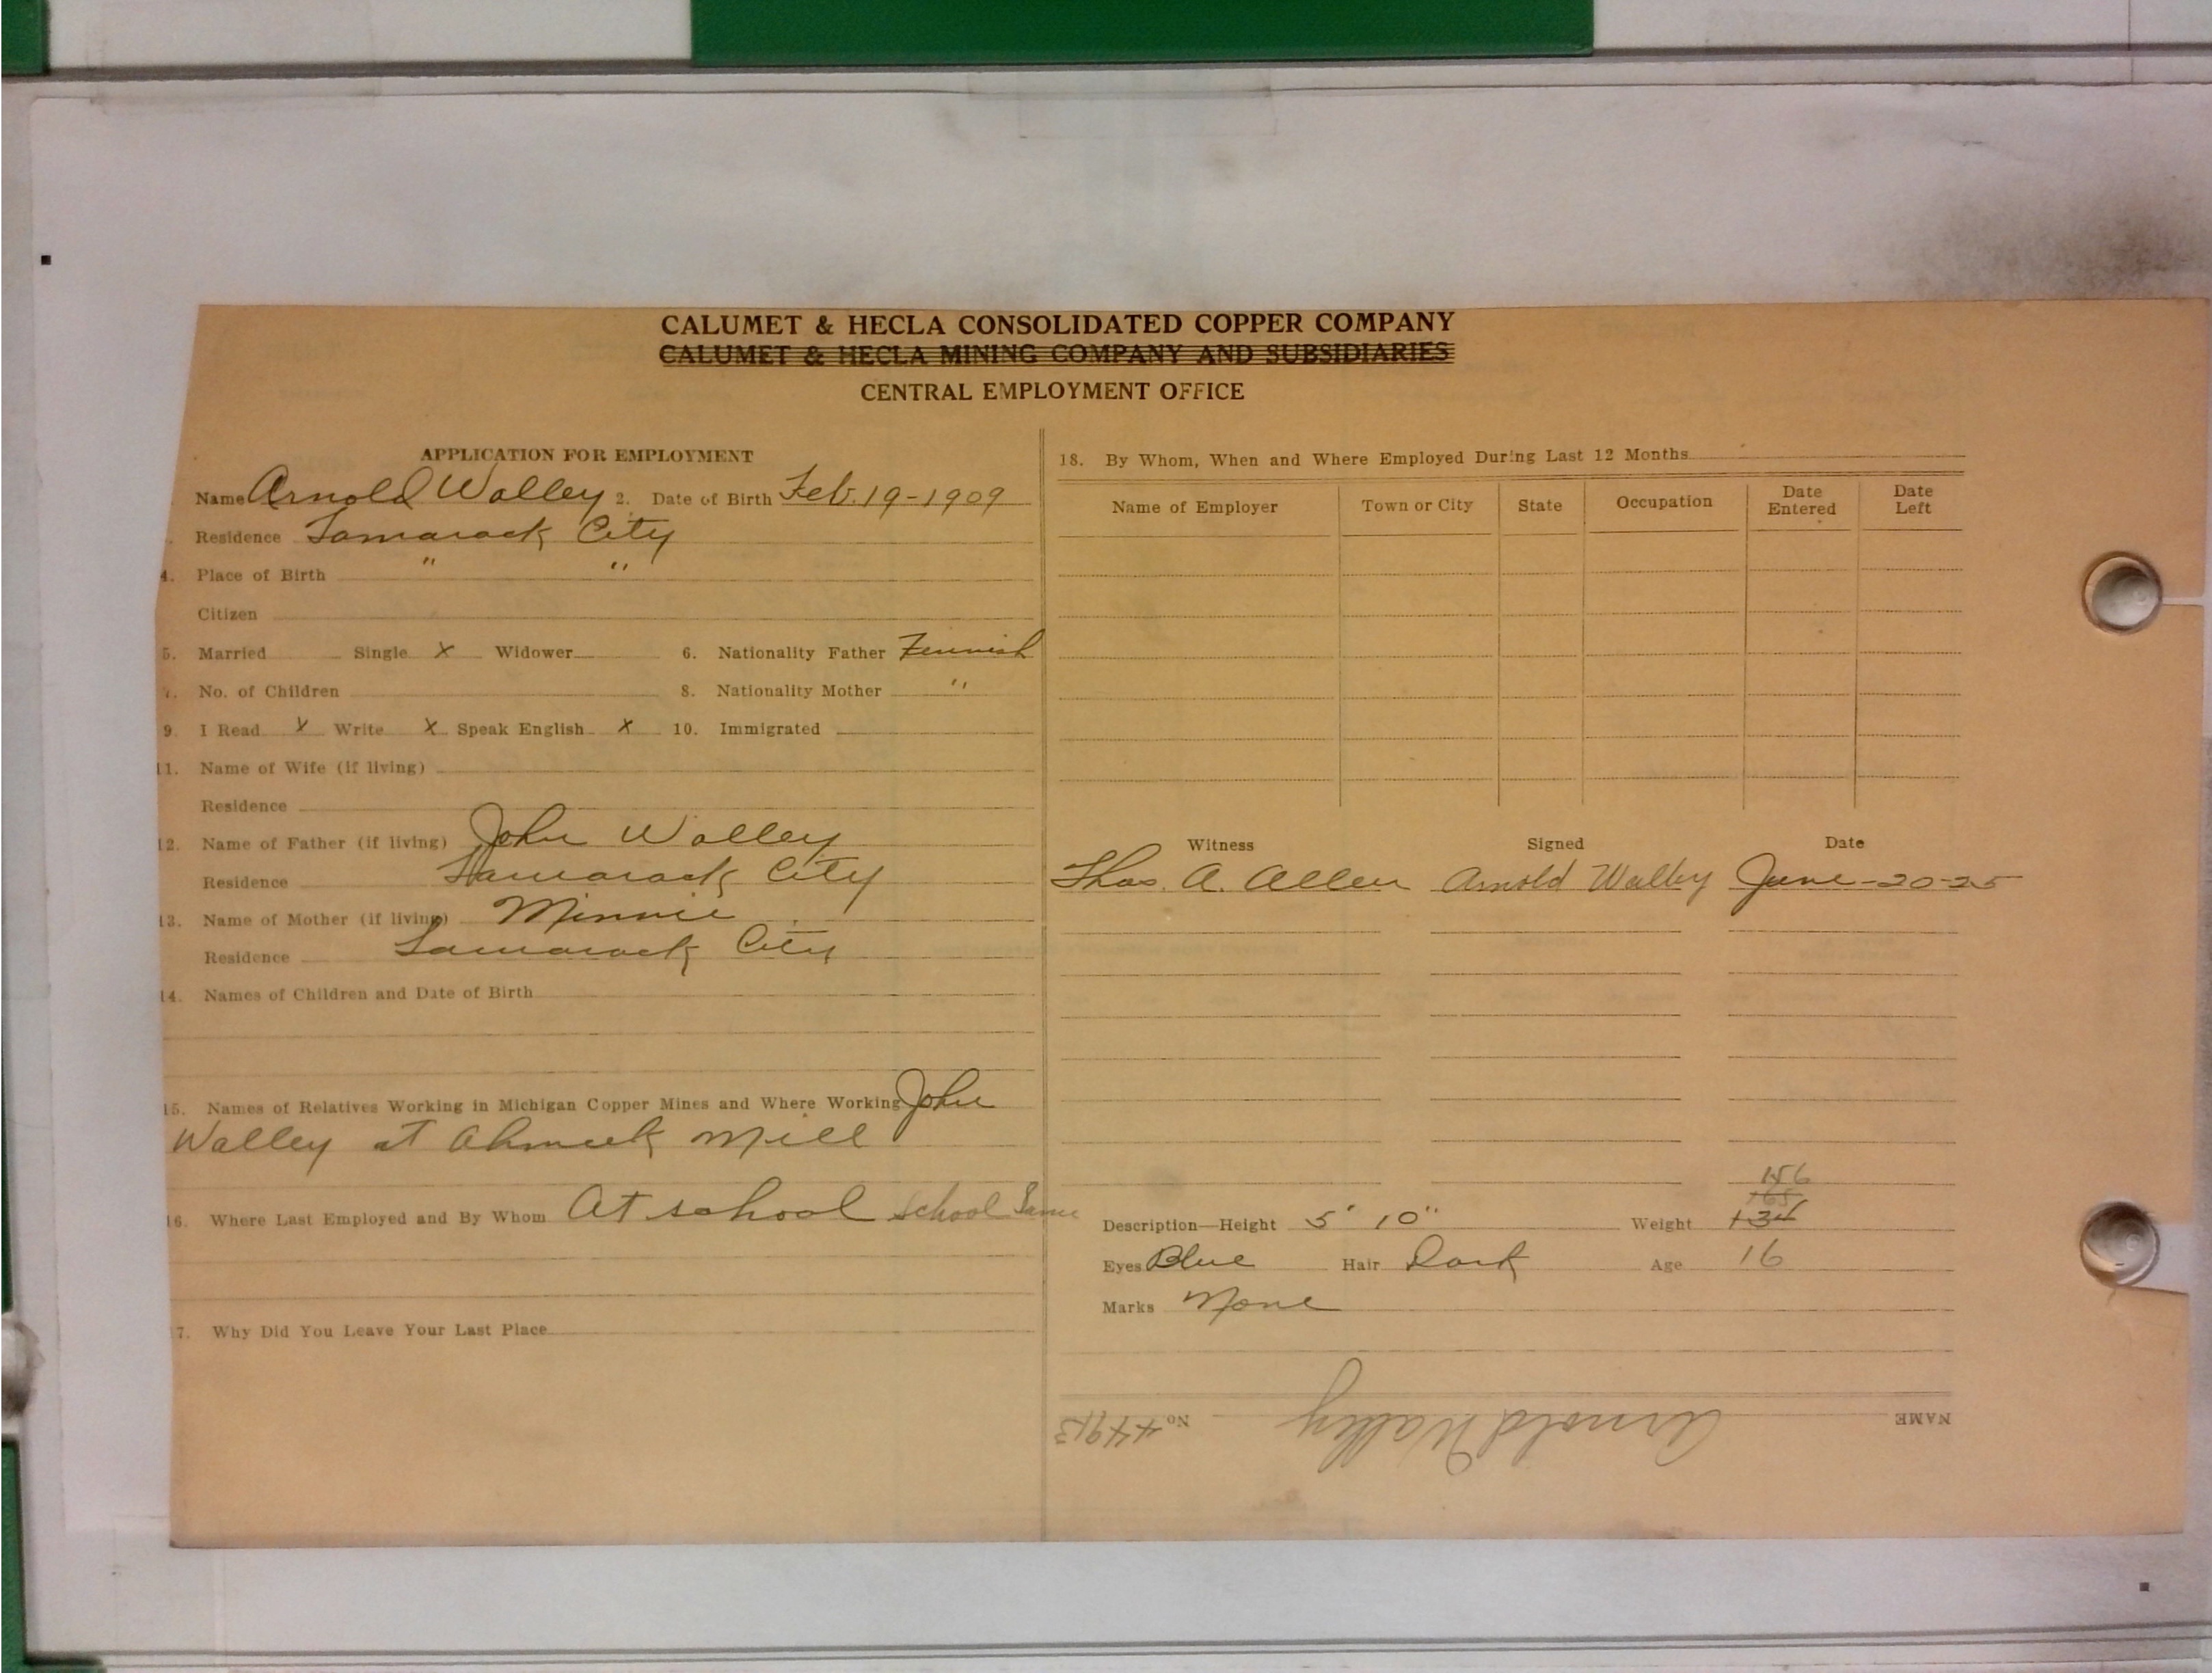 CALUMET & HECLA CONSOLIDATED COPPER COMPANY
CALUMET & HECLA MINING COMPANY AND SUBSIDIARIES
CENTRAL EMPLOYMENT OFFICE
APPLICATION FOR EMPLOYMENT
Name Arnold Walley 2. Date of Birth Feb. 19-1909
Residence Tamarack City
4. Place of Birth " "
Citizen
5. Married Single X Widower 6. Nationality Father Finnish
7. No. of Children 8. Nationality Mother "
9. I Read X Write X Speak English X 10. Immigrated
11. Name of Wife (if living)
Residence
12. Name of Father (if living) John Walley
Residence Tamarack City
13. Name of Mother (if living) Minnie
Residence Tamarack City
14. Names of Children and Date of Birth
15. Names of Relatives Working in Michigan Copper Mines and Where Working John
Walley at Ahmeek Mill
16. Where Last Employed and By Whom At school School Same
17. Why Did You Leave Your Last Place
18. By Whom, When and Where Employed During Last 12 Months
Name of Employer Town or City State Occupation Date Entered Date Left
Witness Signed Date
Thos. A. Allen Arnold Walley June-20-25
156
165
Description—Height 5' 10" Weight 134
Eyes Blue Hair Dark Age 16
Marks None
NAME Arnold Walley No.